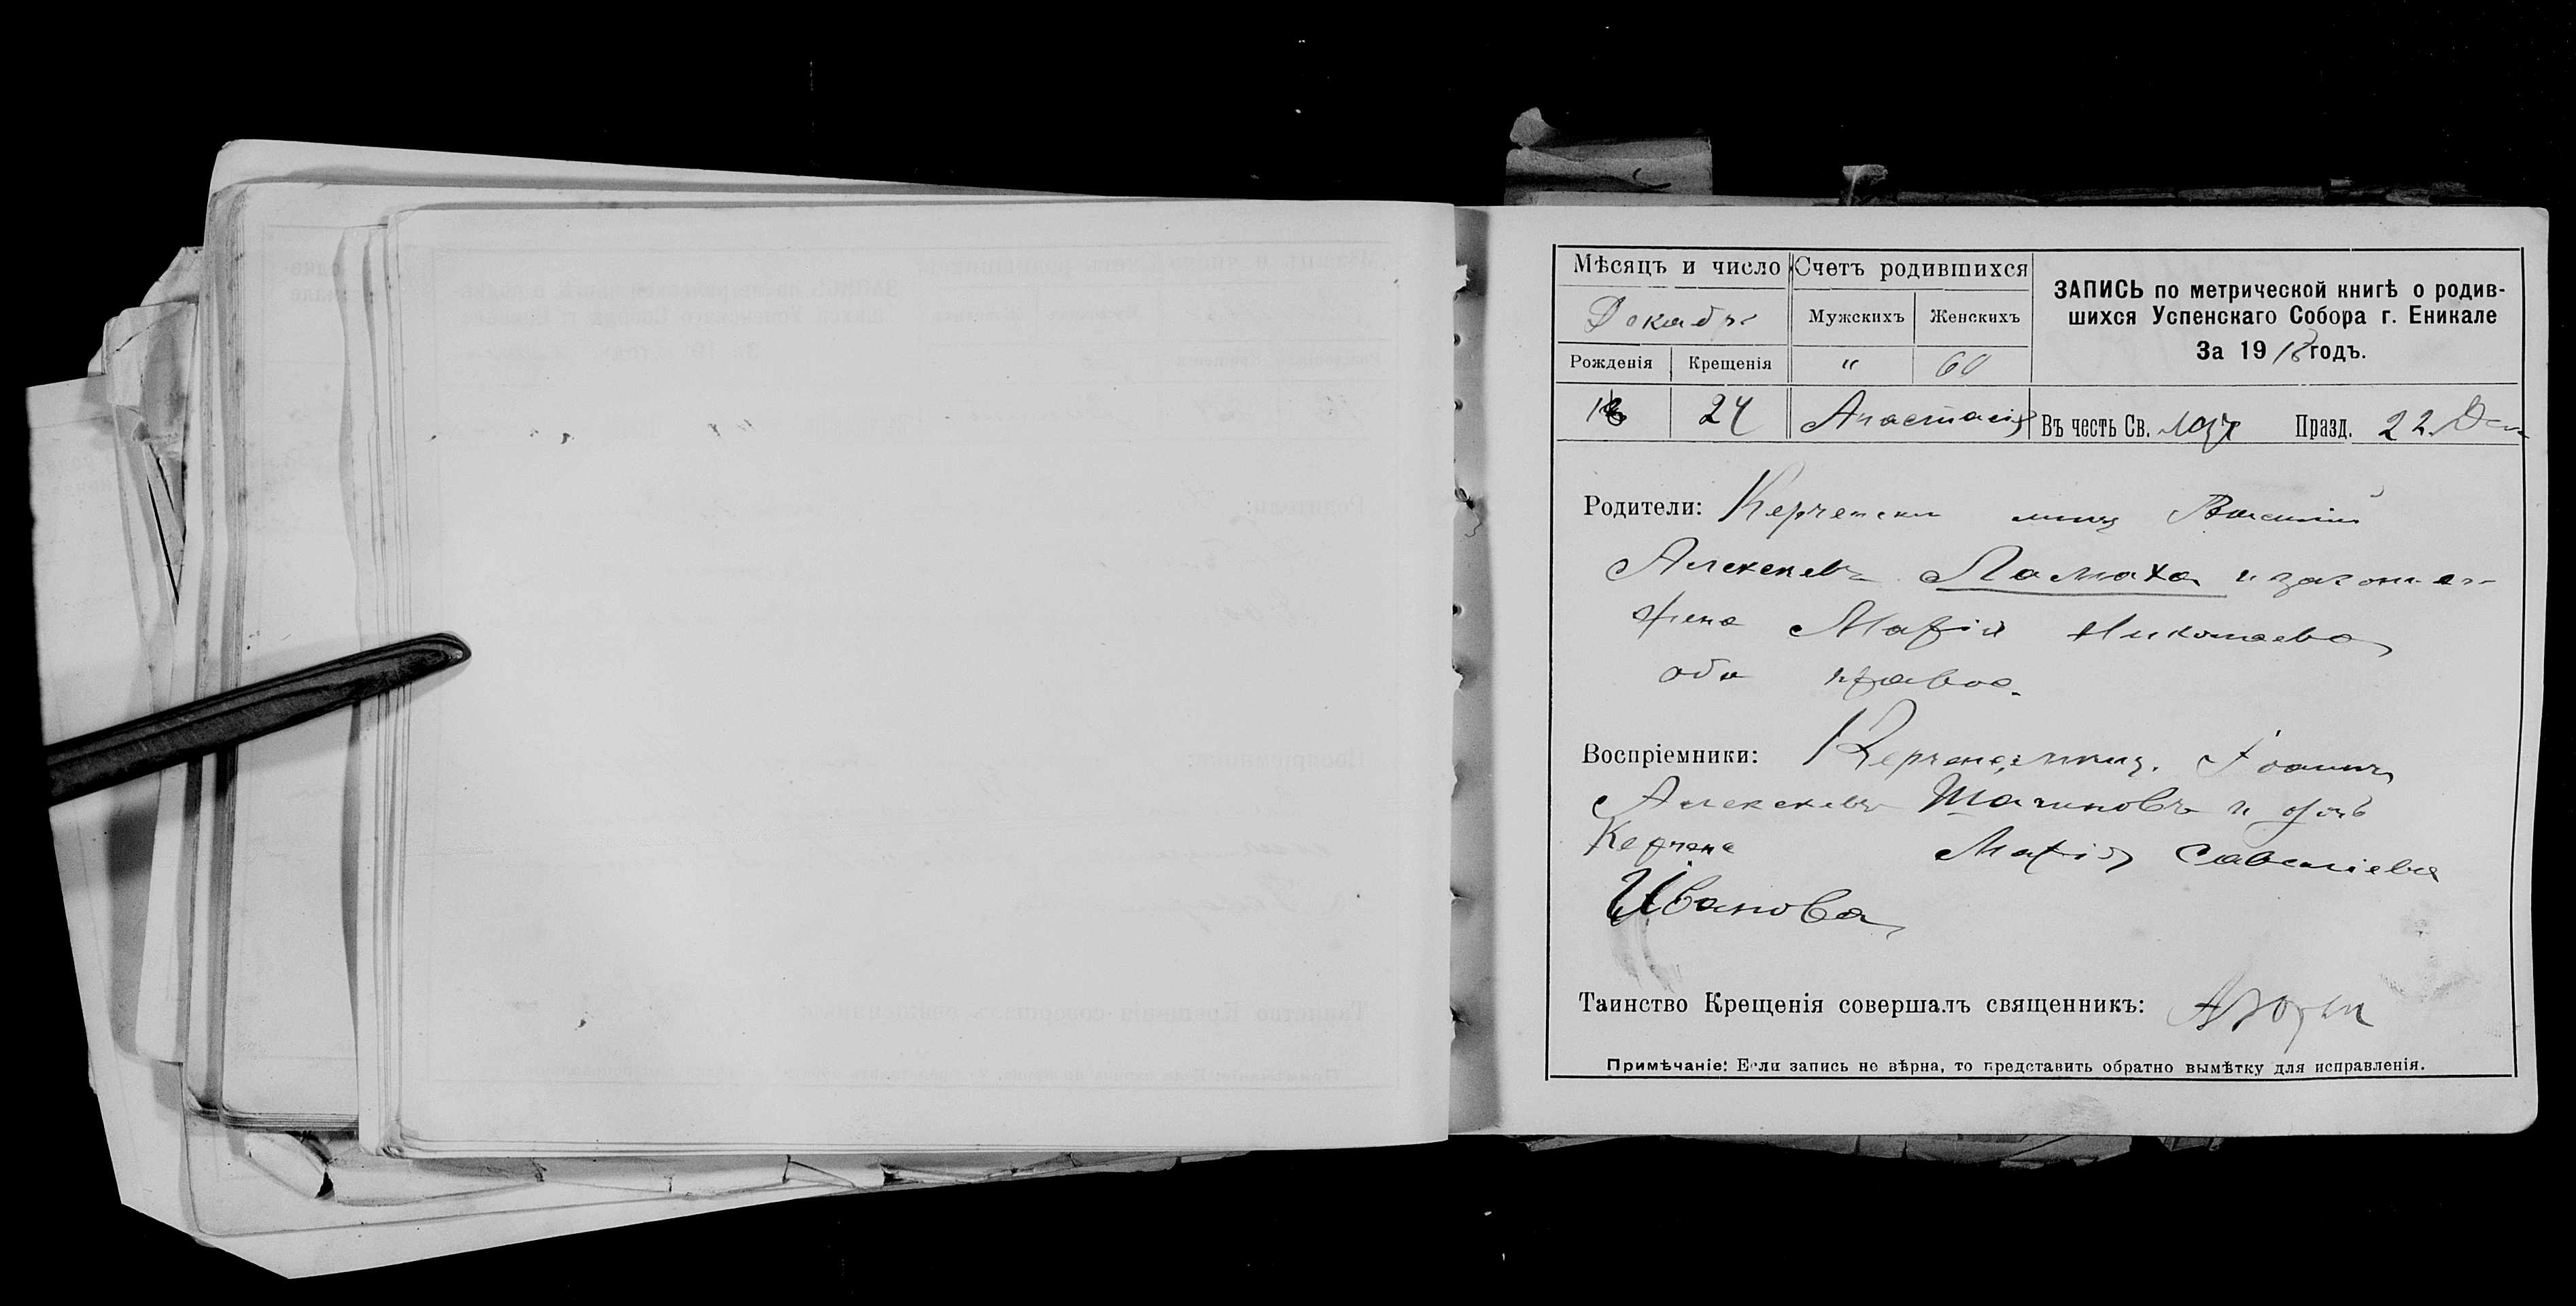 Мѣсяцъ и число Счетъ родившихся
ЗАПИСЬ по метрической книгѣ о родив-
шихся Успенскаго Собора г. Еникале
За 1918 годъ.
Декабрь Мужскихъ Женскихъ
Рожденія Крещенія " 60
24 Анастасія Въ честь Св. муч Празд. 22 Дек
Родители: Керченскі мѣщ Василій
Алексѣевъ Ламаха и законная
жена Марія Николаева
оба правос.
Воспріемники: Керченс. мѣщ. Іоаннъ
Алексѣевъ Шагиновъ и дочь
Керчен Марія Савеліева
Иванова
Таинство Крещенія совершалъ священникъ:
Примѣчаніе: Если запись не вѣрна, то представить обратно вымѣтку для исправленія.